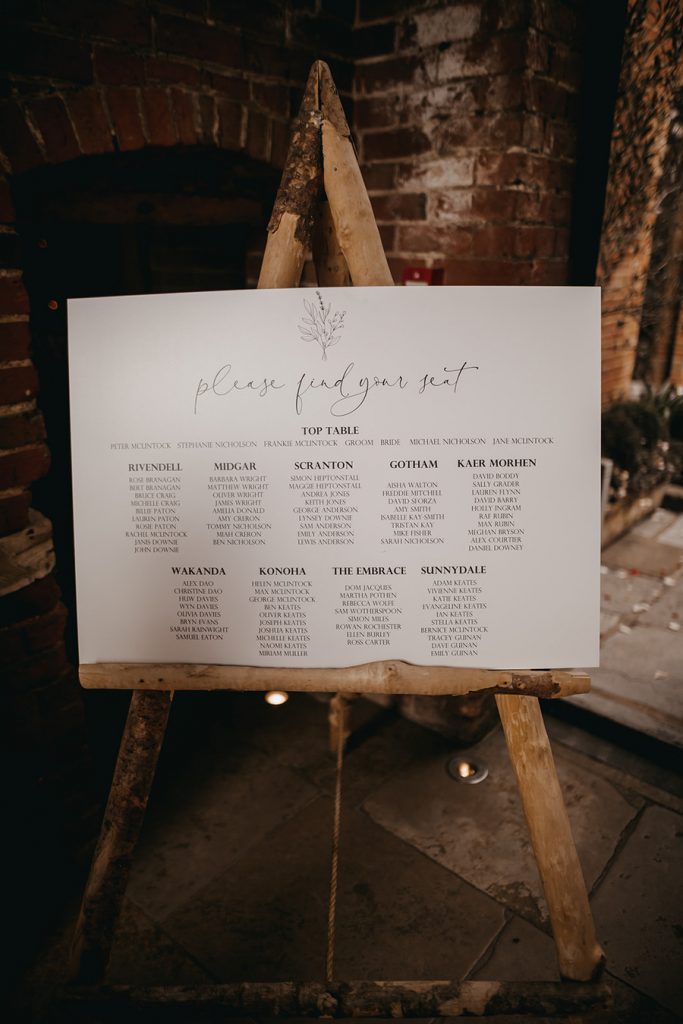 please find your seat
TOP TABLE
PETER MCLINTOCK STEPHANIE NICHOLSON FRANKIE MCLINTOCK GROOM BRIDE MICHAEL NICHOLSON JANE MCLINTOCK
RIVENDELL
ROSE BRANAGAN
BERT BRANAGAN
BRUCE CRAIG
MICHELLE CRAIG
BILLIE PATON
LAUREN PATON
ROSIE PATON
RACHEL MCLINTOCK
JANIS DOWNIE
JOHN DOWNIE
MIDGAR
BARBARA WRIGHT
MATTHEW WRIGHT
OLIVER WRIGHT
JAMES WRIGHT
AMELIA DONALD
AMY CRERON
TOMMY NICHOLSON
MIAH CRERON
BEN NICHOLSON
SCRANTON
SIMON HEPTONSTALL
MAGGIE HEPTONSTALL
ANDREA JONES
KEITH JONES
GEORGE ANDERSON
LYNSEY DOWNIE
SAM ANDERSON
EMILY ANDERSON
LEWIS ANDERSON
GOTHAM
AISHA WALTON
FREDDIE MITCHELL
DAVID SFORZA
AMY SMITH
ISABELLA KAY SMITH
TRISTAN KAY
MIKE FISHER
SARAH NICHOLSON
KAER MORHEN
DAVID BODDY
SALLY GRADER
LAUREN FLYNN
DAVID BARRY
HOLLY INGRAM
RAF RUBIN
MAX RUBIN
MEGHAN BRYSON
ALEX COURTIER
DANIEL DOWNEY
WAKANDA
ALEX DAO
CHRISTINE DAO
HUW DAVIES
WYN DAVIES
OLIVIA DAVIES
BRYN EVANS
SARAH RAINWRIGHT
SAMUEL EATON
KONOHA
HELEN MCLINTOCK
MAX MCLINTOCK
GEORGE MCLINTOCK
BEN KEATES
OLIVER KEATES
JOSEPH KEATES
JOSHUA KEATES
MICHELLE KEATES
NAOMI KEATES
MIRIAM MULLER
THE EMBRACE
DOM JACQUES
MARTHA POTHEN
REBECCA WOLFE
SAM WOTHERSPOON
SIMON MILES
ROWAN ROCHESTER
ELLEN BURLEY
ROSS CARTER
SUNNYDALE
ADAM KEATES
VIVIENNE KEATES
KATIE KEATES
EVANGELINE KEATES
IAN KEATES
STELLA KEATES
BERNICE MCLINTOCK
TRACEY GUINAN
DAVE GUINAN
EMILY GUINAN